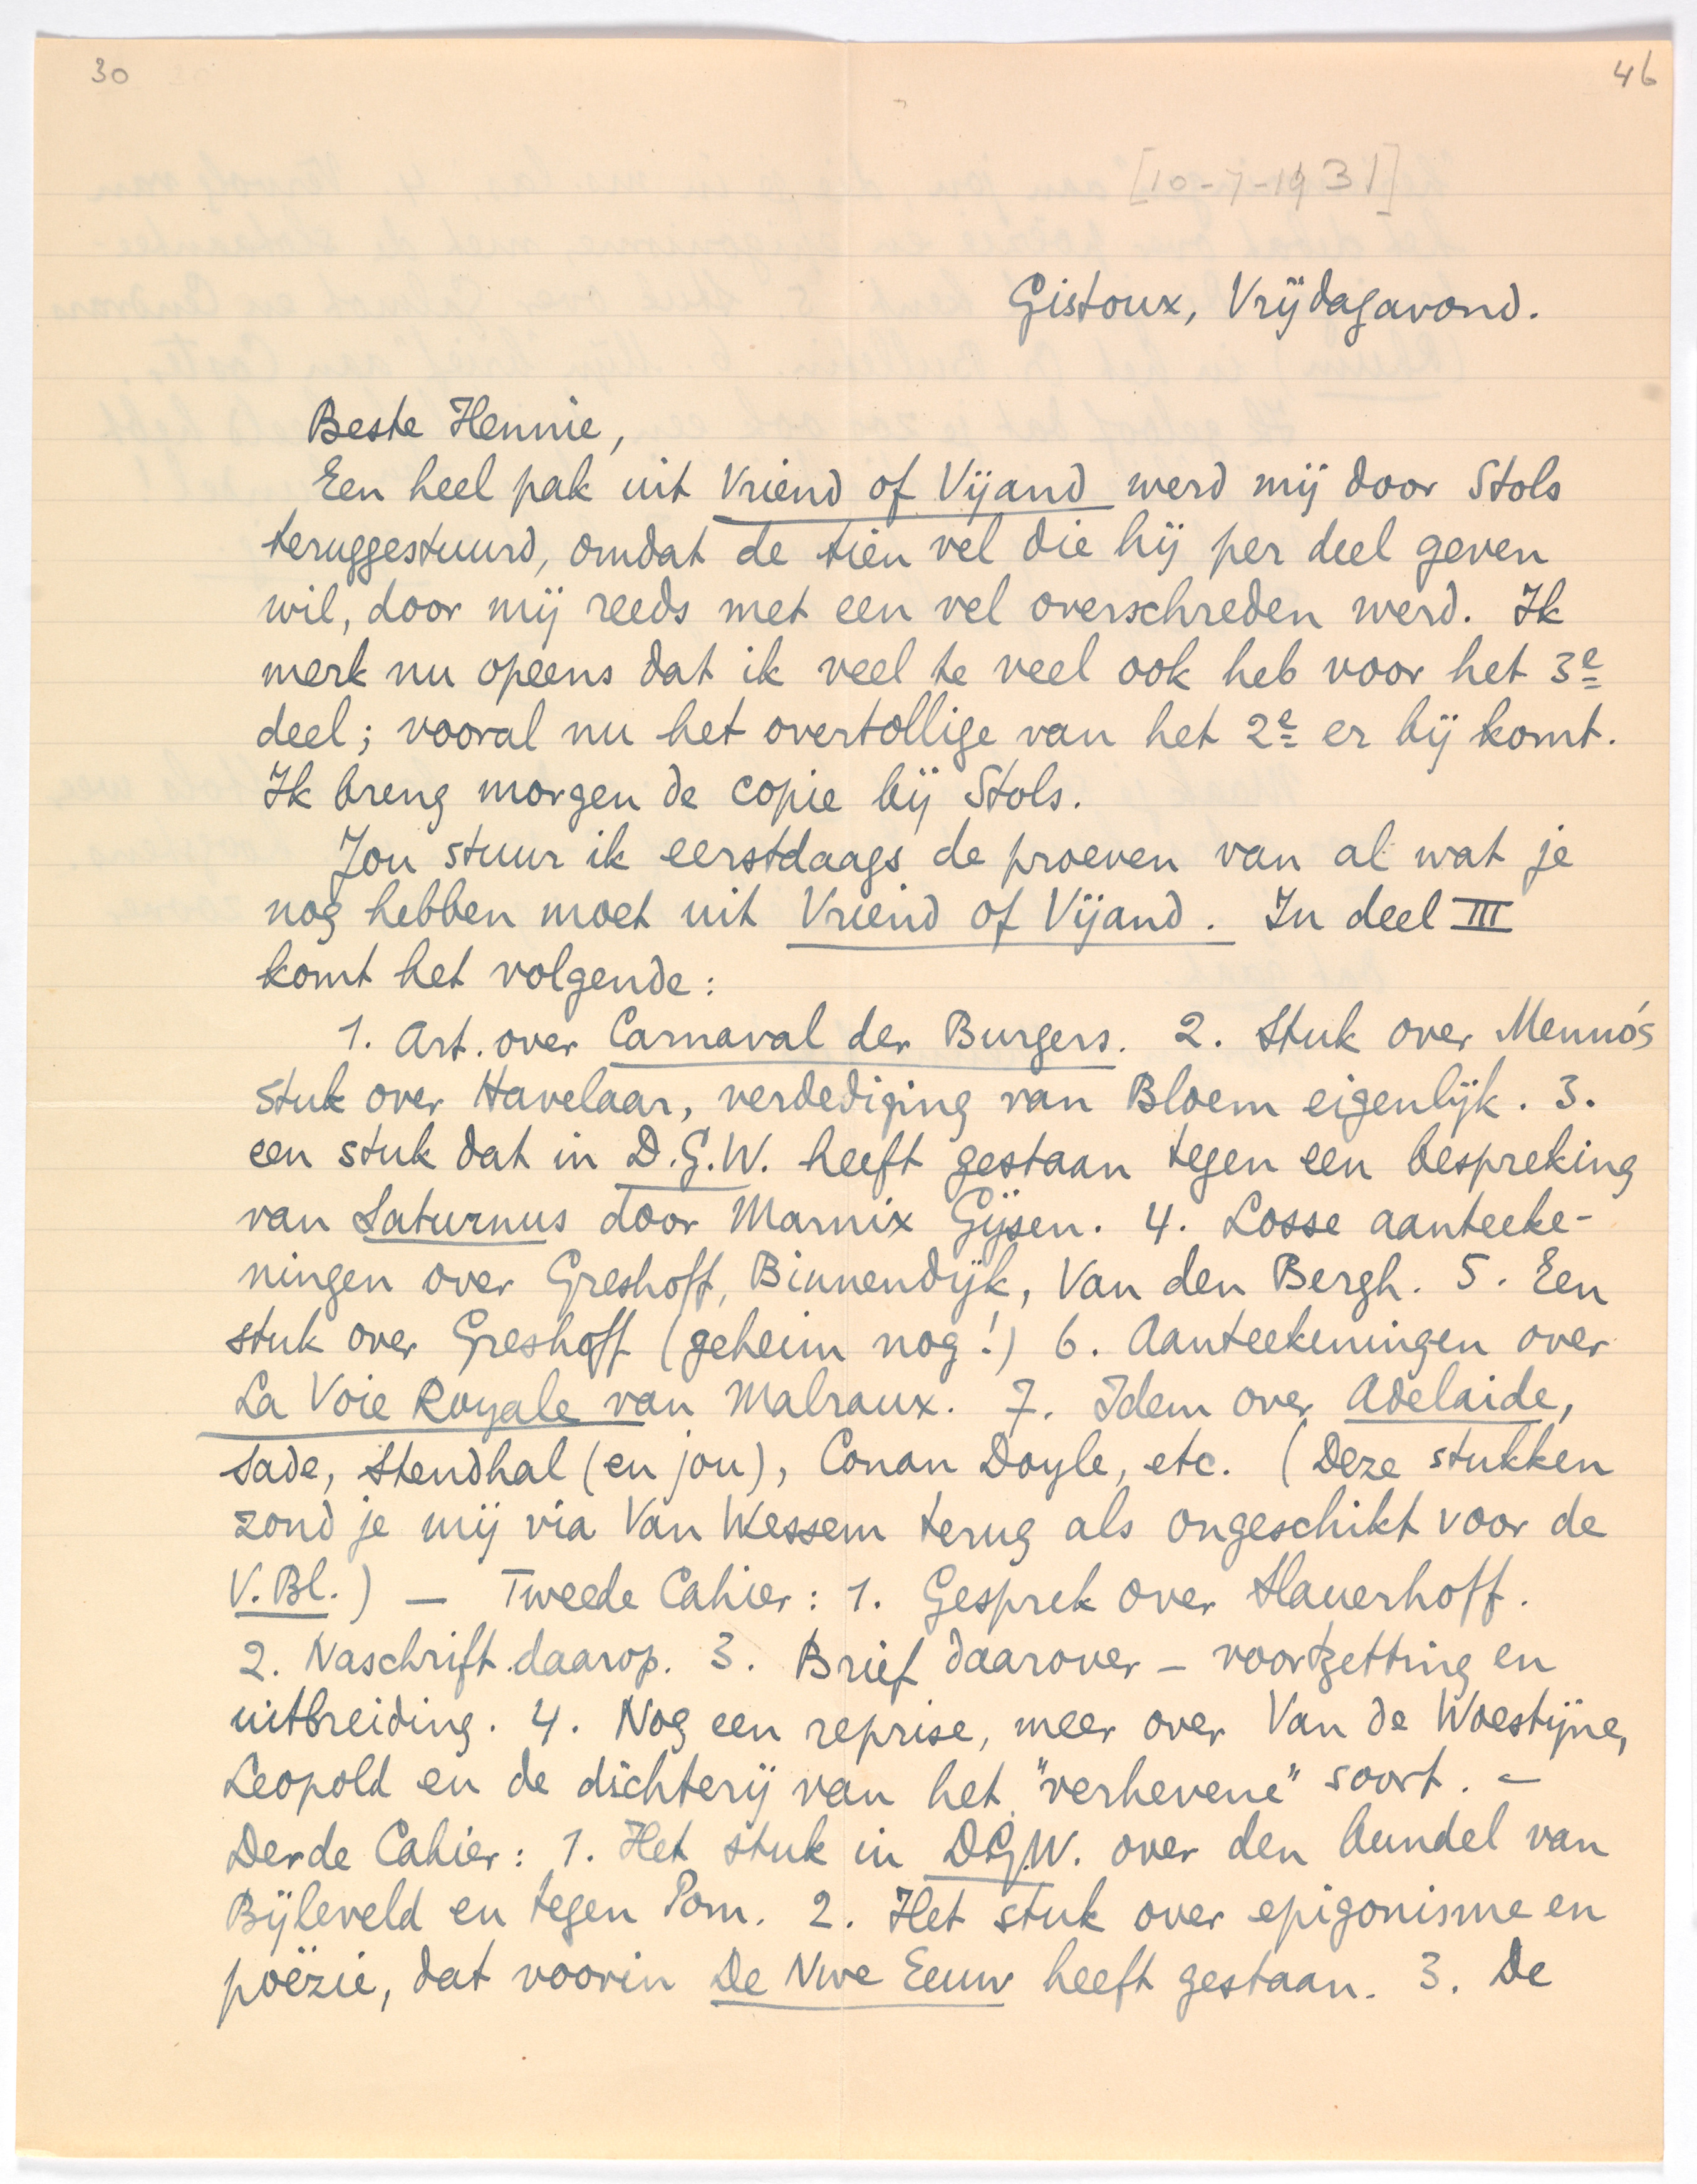 30
46
[10-7-1931]
Gistoux, Vrijdagavond.
Beste Hennie,
Een heel pak uit Vriend of Vijand werd mij door Stols
teruggestuurd, omdat de tien vel die hij per deel geven
wil, door mij reeds met een vel overschreden werd. Ik
merk nu opeens dat ik veel te veel ook heb voor het 3e
deel; vooral nu het overtollige van het 2e er bij komt.
Ik breng morgen de copie bij Stols.
Jou stuur ik eerstdaags de proeven van al wat je
nog hebben moet uit Vriend of Vijand. In deel III
komt het volgende:
1. Art. over Carnaval der Burgers. 2. Stuk over Menno's
stuk over Havelaar, verdediging van Bloem eigenlijk. 3.
een stuk dat in D.G.W. heeft gestaan tegen een bespreking
van Saturnus door Marnix Gijsen. 4. Losse aanteeke-
ningen over Greshoff, Binnendijk, Van den Bergh. 5. Een
stuk over Greshoff (geheim nog!) 6. Aanteekeningen over
La Voie Royale van Malraux. 7. Idem over Adelaide,
Sade, Stendhal (en jou), Conan Doyle, etc. (Deze stukken
zond je mij via Van Wessem terug als ongeschikt voor de
V.Bl.) — Tweede Cahier: 1. Gesprek over Slauerhoff.
2. Naschrift daarop. 3. Brief daarover – voortzetting en
uitbreiding. 4. Nog een reprise, meer over Van de Woestijne,
Leopold en de dichterij van het "verhevene" soort. –
Derde Cahier: 1. Het stuk in D.G.W. over den bundel van
Bijleveld en tegen Pom. 2. Het stuk over epigonisme en
poëzie, dat voorin De Nwe Eeuw heeft gestaan. 3. De